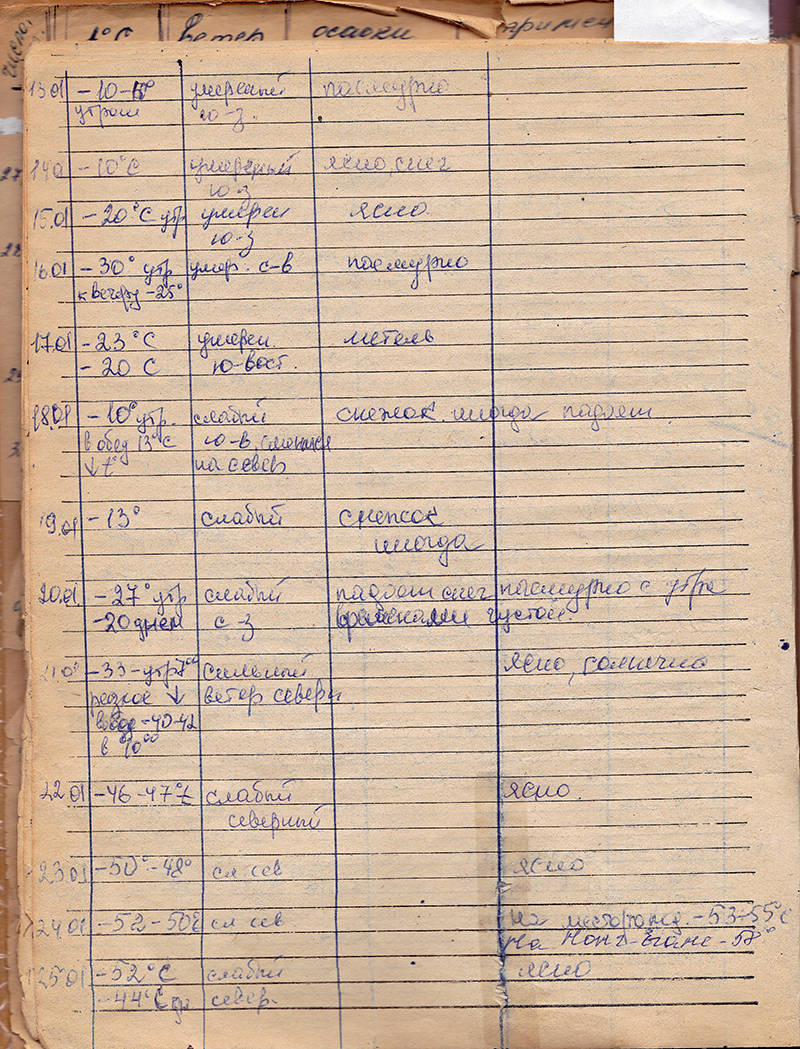 число t°C ветер осадки примеч
13.01 -10- утром умеренный ю-з. пасмурно
14.01 -10°C умеренный ю-з ясно, снег
15.01 -20°C утр умерен ю-з ясно.
16.01 -30° утр умер. с-в пасмурно
к вечеру -25°
17.01 -23°C умерен метель
-20 C ю-вост.
18.01 -10° утр. слабый снежок иногда падает
в обед 13°C ю-в, сменился
↓ t° на север
19.01 -13° слабый снежок
иногда
20.01 -27° утр слабый падает снег пасмурно с утра
-20 днем с-з временами густой.
21.01 -33-утр 7⁰⁰ сильный ясно, солнечно
резкое ↓ ветер северн
-40-42
в 10⁰⁰
22.01 -46-47° слабый ясно.
северный
23.01 -50°-48° сл сев ясно
24.01 -52-50 сл сев на месторожд. -53-55°C
На Нонг-Егане -57°
25.01 -52°C слабый ясно
-44°C север.